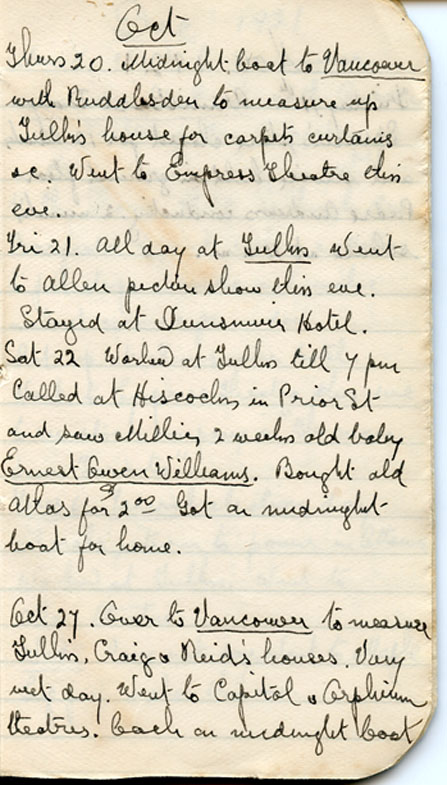 Oct
Thurs 20. Midnight boat to Vancouver
with Ruddlesden to measure up
Tullis house for carpets curtains
&c. Went to Empress Theatre this
eve.
Fri 21. All day at Tullis Went
to Allen picture show this eve.
Stayed at Dunsmuir Hotel.
Sat 22 Worked at Tullis till 7 pm
Called at Hiscocks in Prior St
and saw Millies 2 weeks old baby
Ernest Owen Williams. Bought old
atlas for 2.00 Got on midnight
boat for home.
Oct 27. Over to Vancouver to measure
Tullis, Craig & Reid's houses. Very
wet day. Went to Capitol & Orphium
theatres. Back on midnight boat